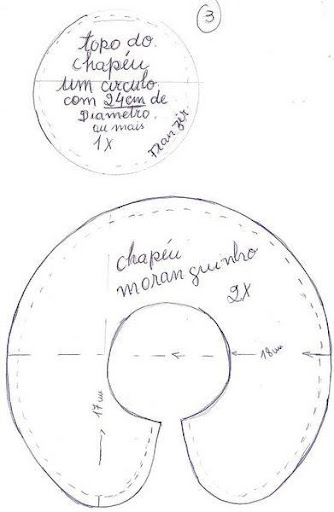 3
topo do
chapéu
um circulo
com 24cm de
Diametro.
ou mais
1X
Franzir
chapéu
moranguinho
2X
18cm
17cm